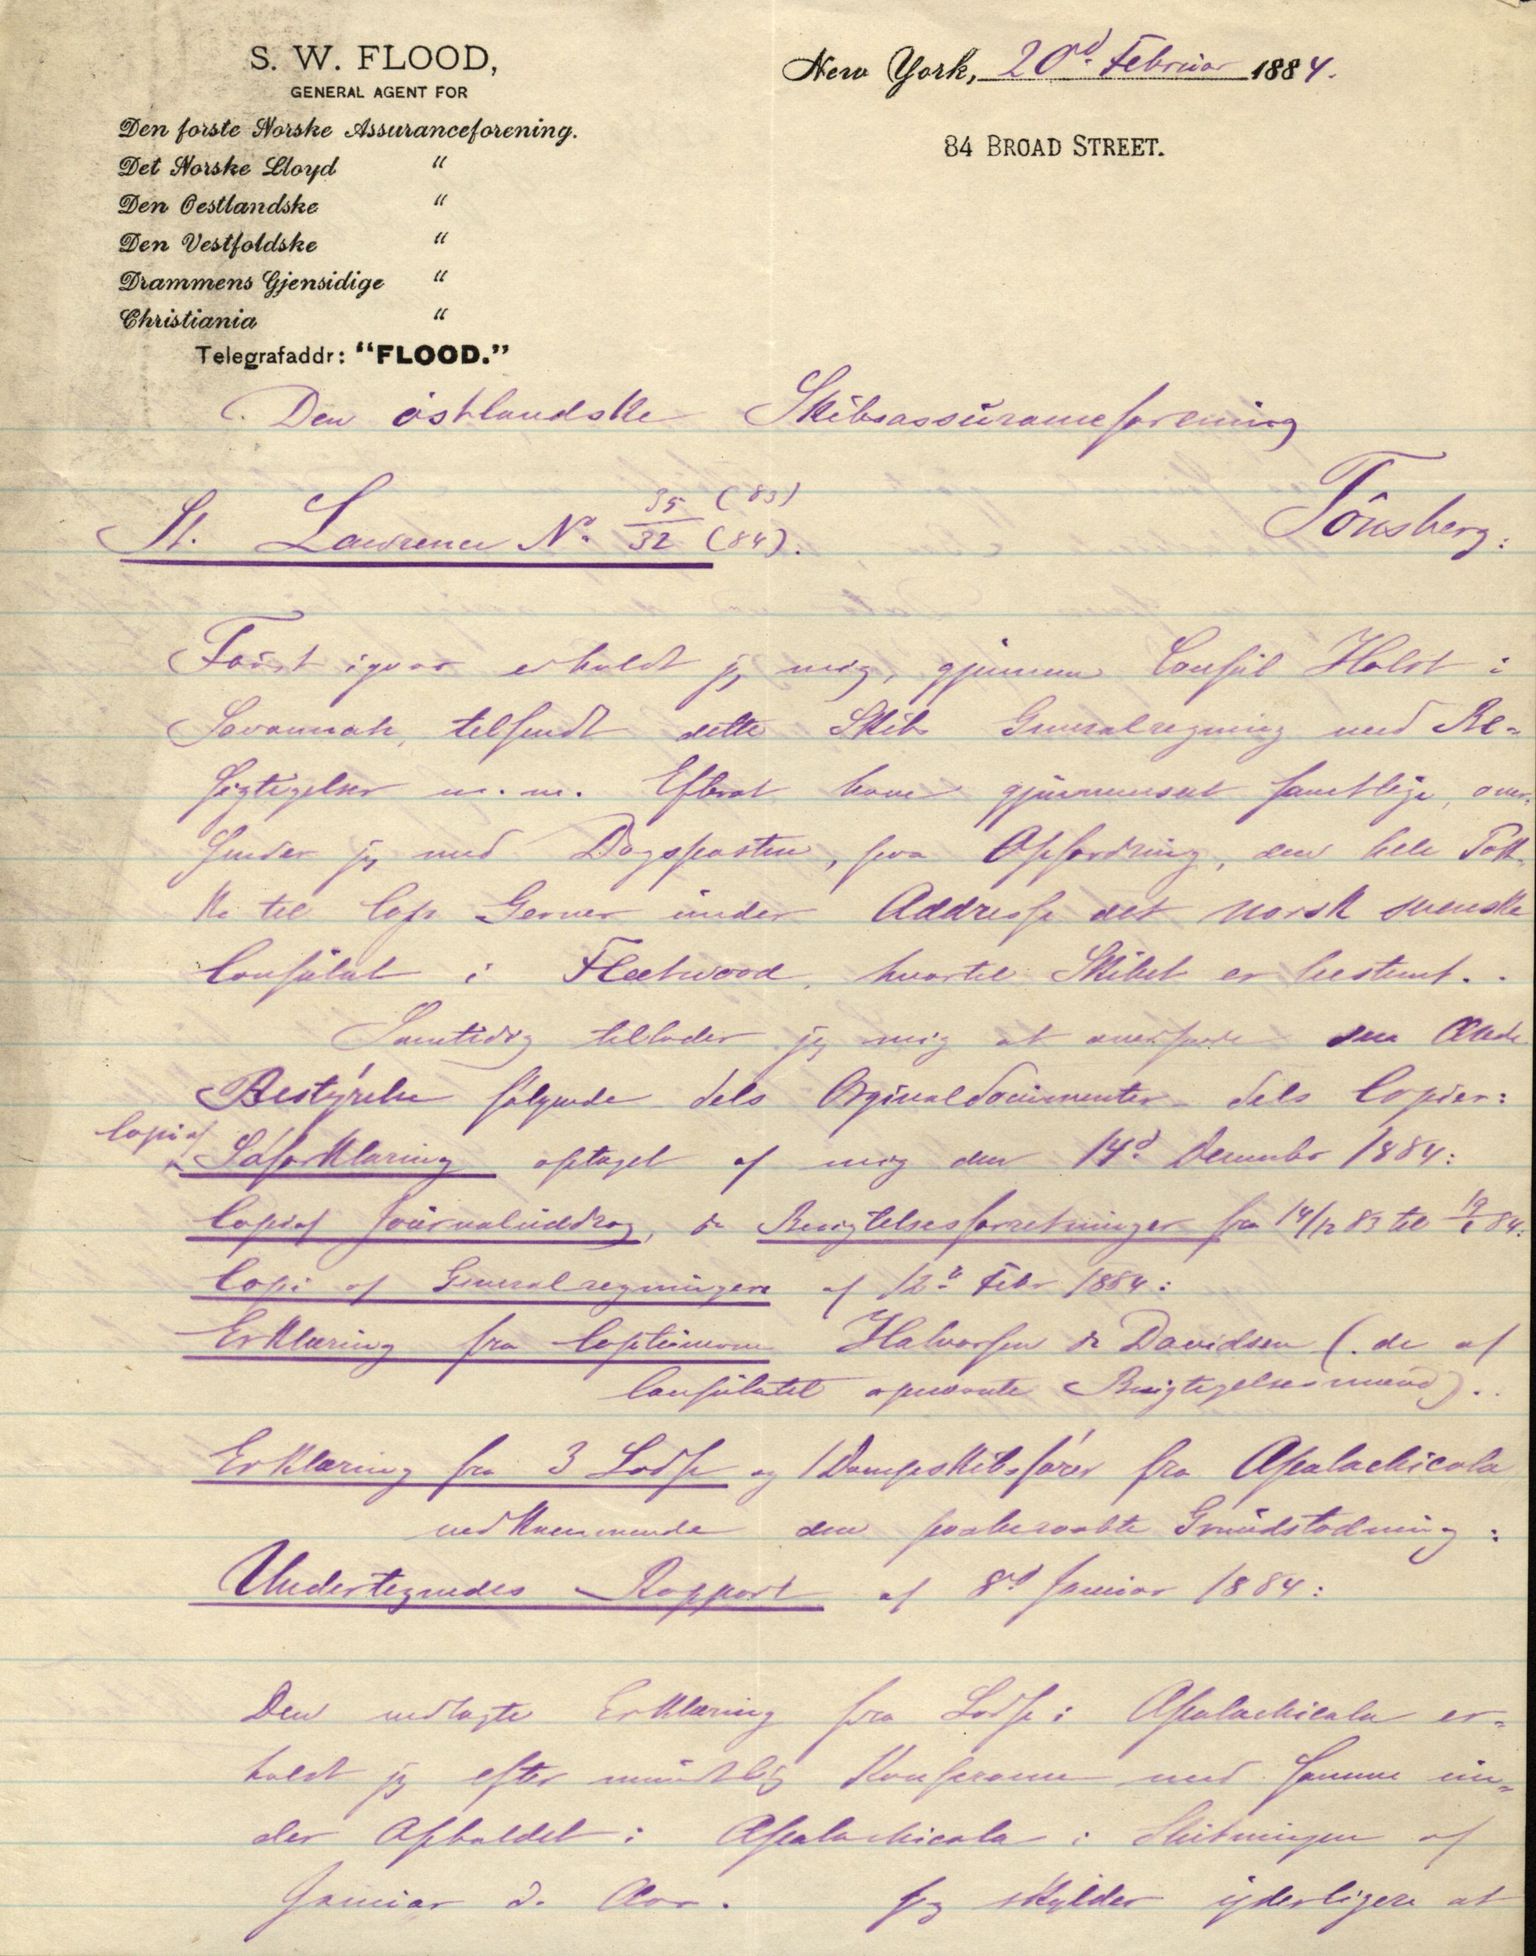 S. W. FLOOD,
GENERAL AGENT FOR
Den forste Norske Assuranceforening.
Det Norske Lloyd "
Den Oestlandske "
Den Vestfoldske "
Drammens Gjensidige "
Christiania "
Telegrafaddr: "FLOOD."
New York, 20d Februar 1884.
84 BROAD STREET.
Den östlandske Skibsassuranceforening
Tönsberg:
St. Lawrence No. 35/32 (83) (84).
Först igaar erholdt jeg mig, gjennem Consul Holst i
Savannah, tilsendt dette Skibs Generalregning med Be-
sigtigelser m.m. Efterat have gjennemseet samtlige, over-
sender jeg med Dagsposten, paa Opfordring, den hele Pak-
ke til Cap Gerner under Addresse det norsk svenske
Consulat i Fleetwood, hvortil Skibet er bestemt.
Samtidig tillader jeg mig at oversende den Ærede
Bestyrelse følgende dels Orginaldocumenter dels Copier:
Copi af
Søforklaring optaget af mig den 14d December 1884:
Copi af Journaluddrag, & Besigtelsesforretninger fra 14/12 83 til 19/1 84:
Copi af Generalregningen af 12te Febr 1884:
Erklæring fra Captainerne Halvorsen & Davidsen (de af
Consulatet opnævnte Besigtigelsesmænd)..
Erklæring fra 3 Lodse og 1 Dampskibsfører fra Apalachicola
vedkommende den paaberaabte Grundstødning:
Undertegnedes Rapport af 8d Januar 1884:
Den vedlagte Erklæring fra Lodse i Apalachicola er-
holdt jeg efter mundtlig Konferance med samme un-
der Opholdet i Apalachicola i Slutningen af
Januar d. Aar. Jeg skylder yderligere at